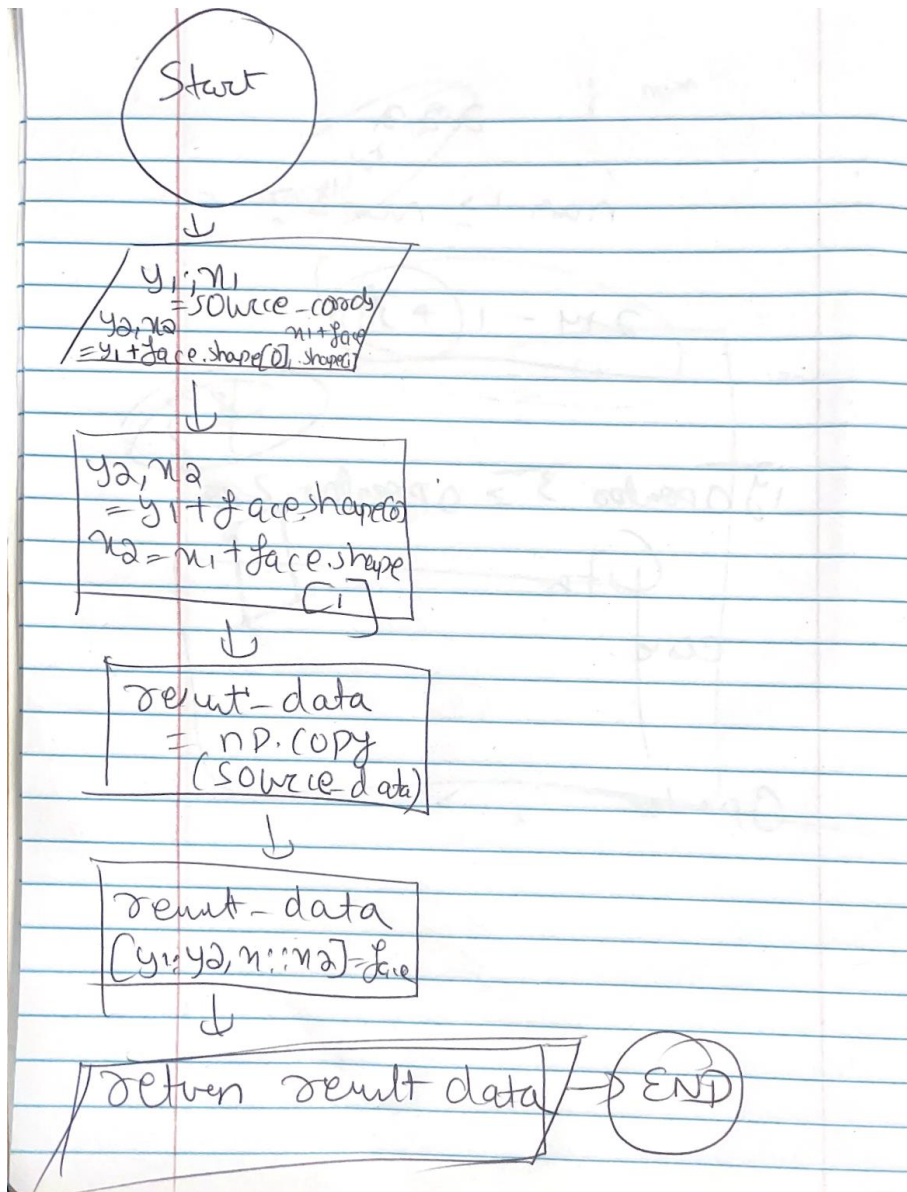 Start
y1, x1
= source-coords
y2, x2
x1+face
= y1+face.shape[0], .shape[1]
y2, x2
= y1+face.shape[0]
x2 = x1+face.shape
[1]
result-data
= np.copy
(source-data)
result-data
[y1:y2, x1:x2]=face
return result data
END